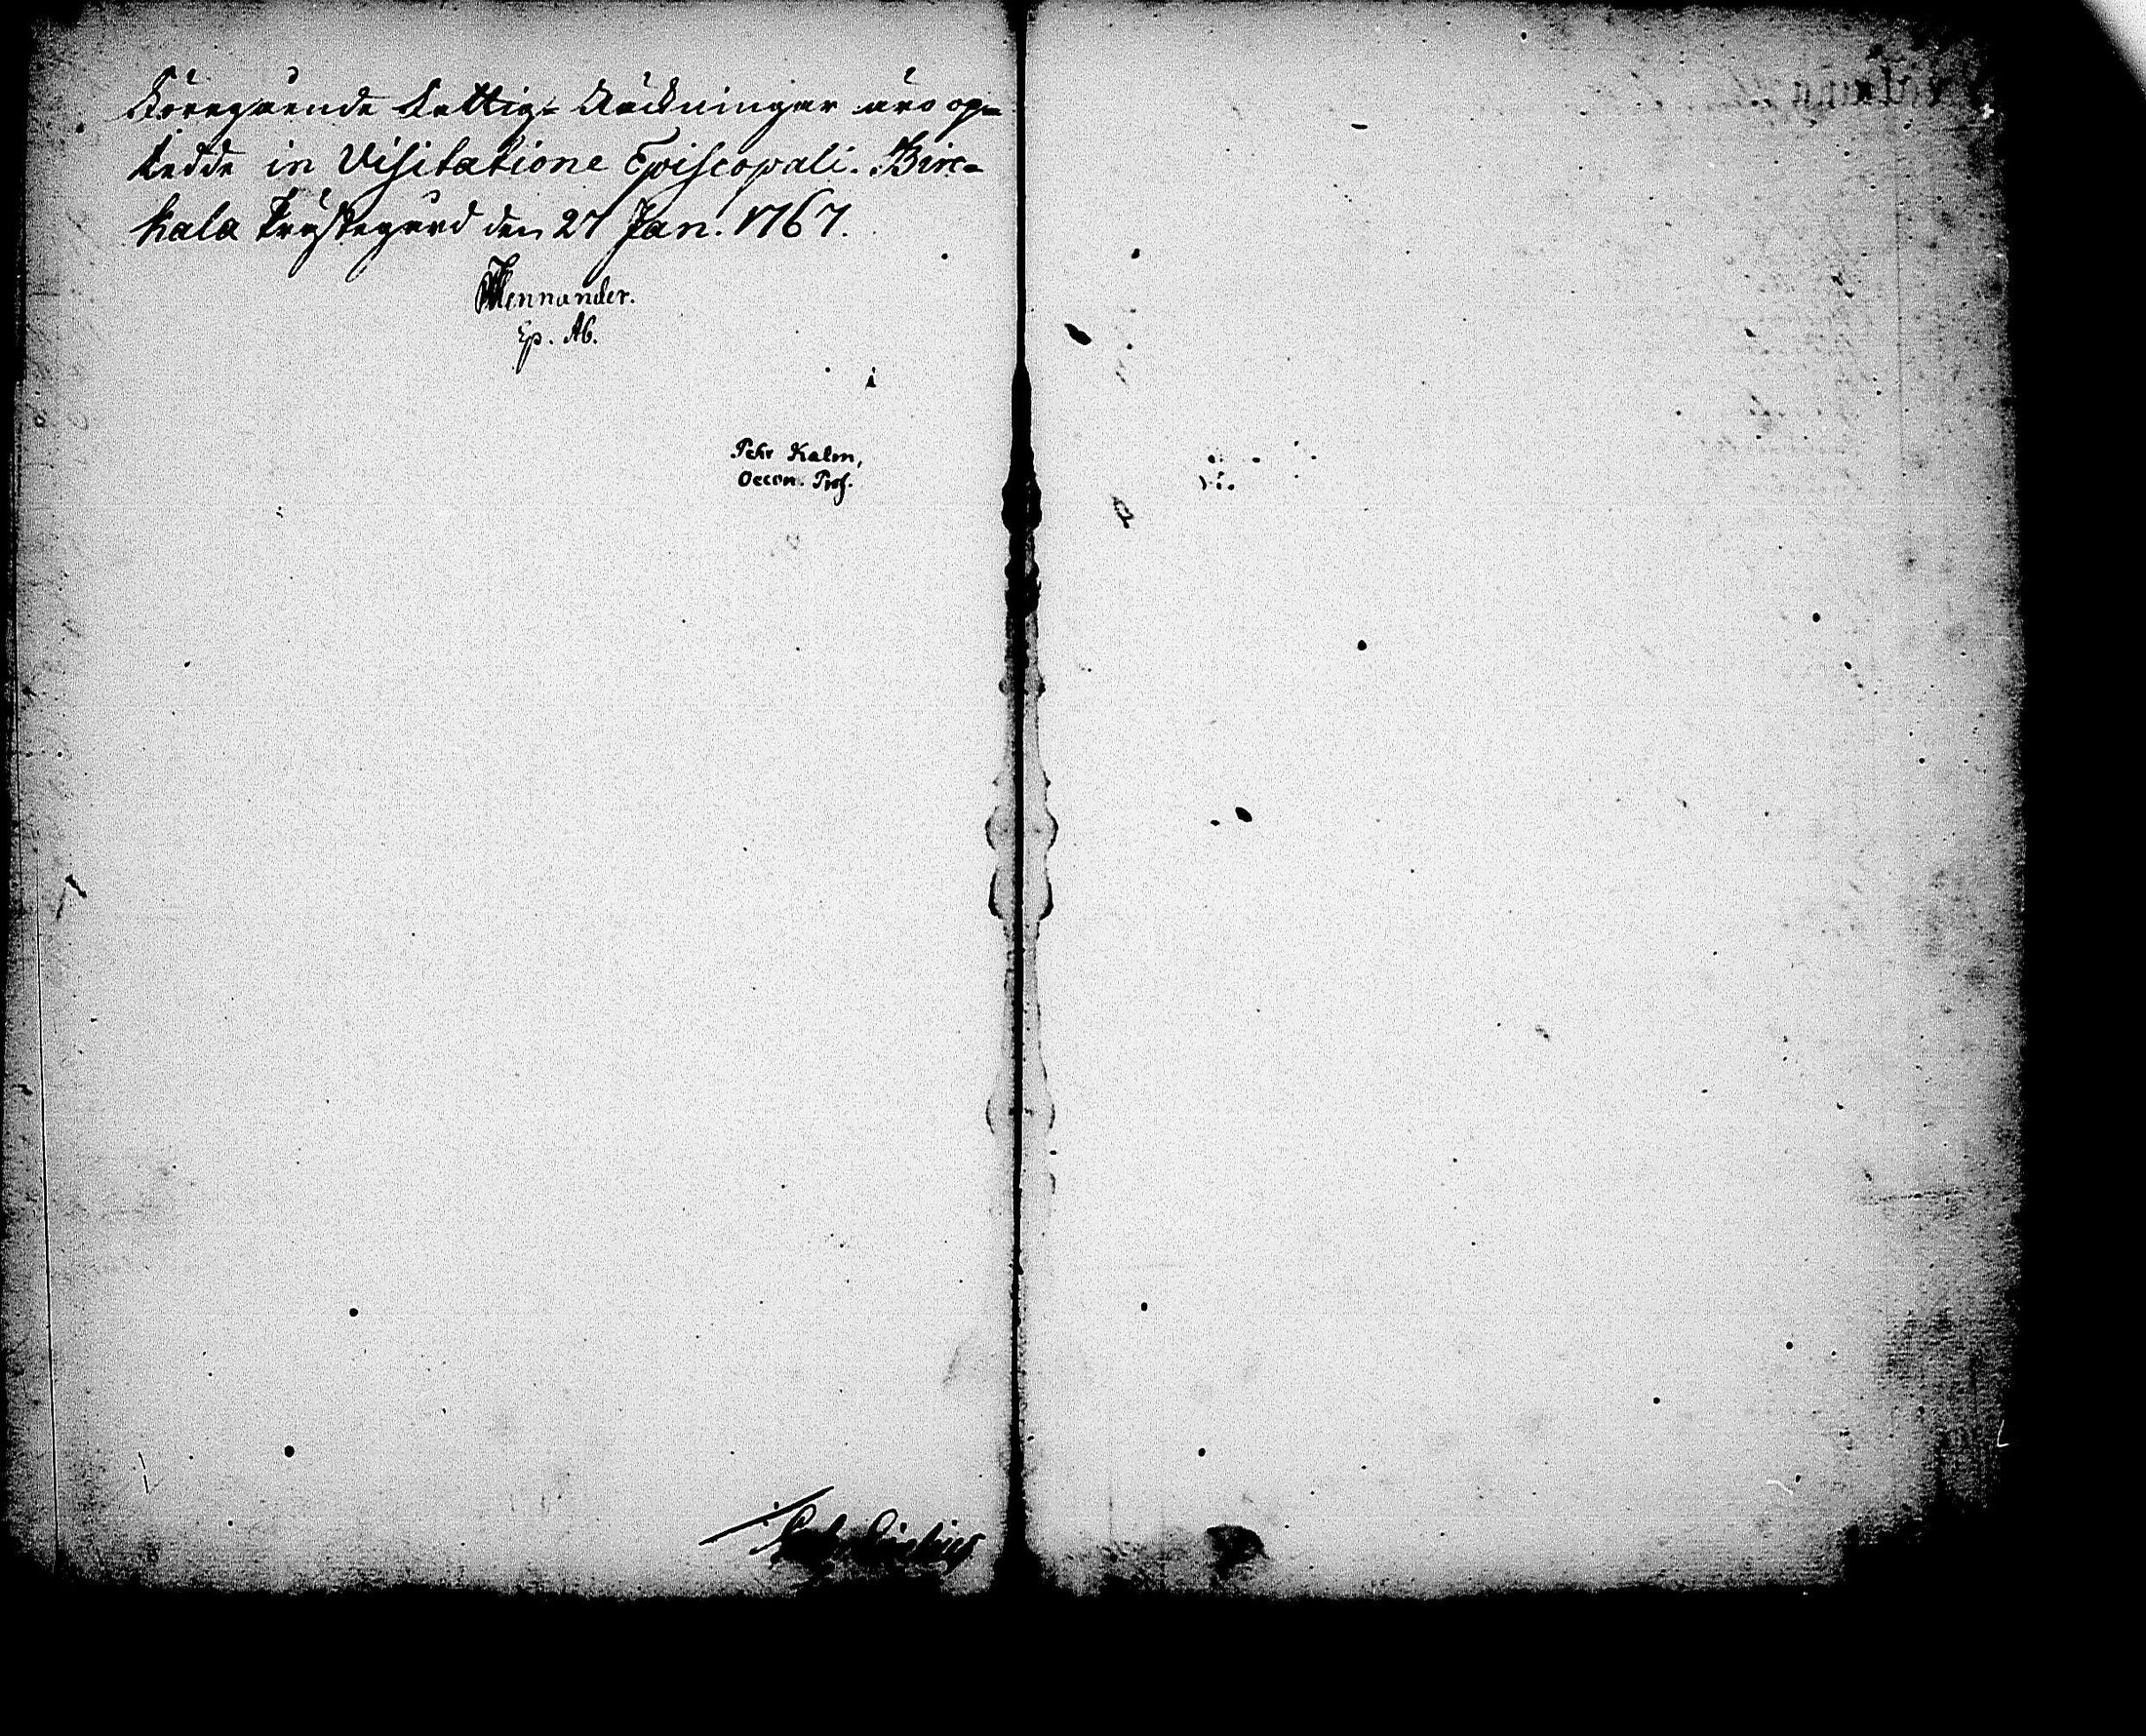 Föregående Fattig- Räckningar äro op-
ledde in Visitatione Episcopali. Birc-
kala Prästegård den 27 Jan. 1767.
Mennander.
Ep. Ab.
Pehr Kalm,
Oecon. Prof.